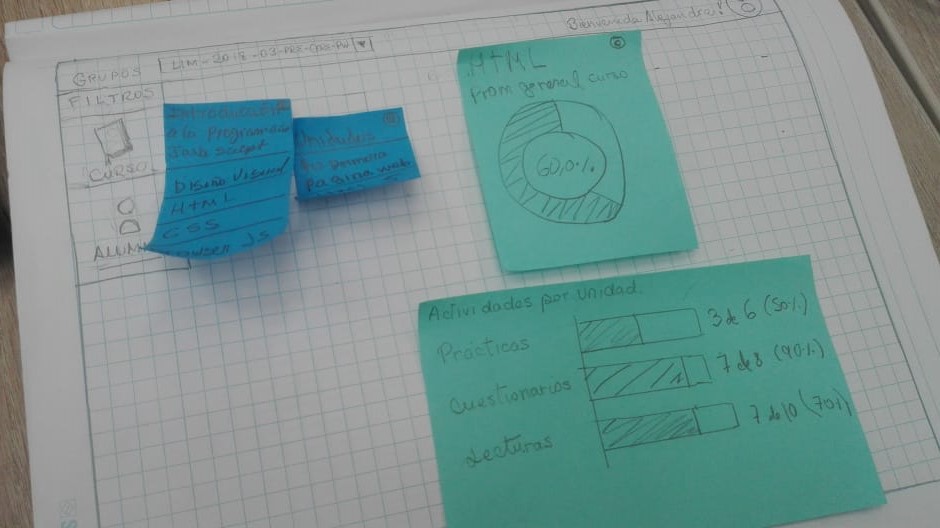 Bienvenida Alejandra!
GRUPOS
LIM-2018-03-PRE-CORE-PW
FILTROS
CURSO
ALUM
Introducción
a la Programación
Java script
DISEÑO VISUAL
HTML
CSS
JS
tu primera
pagina web
HTML
prom general curso
60,0%
Actividades por unidad.
Prácticas
3 de 6 (50%)
Cuestionarios
7 de 8 (90%)
Lecturas
7 de 10 (70%)